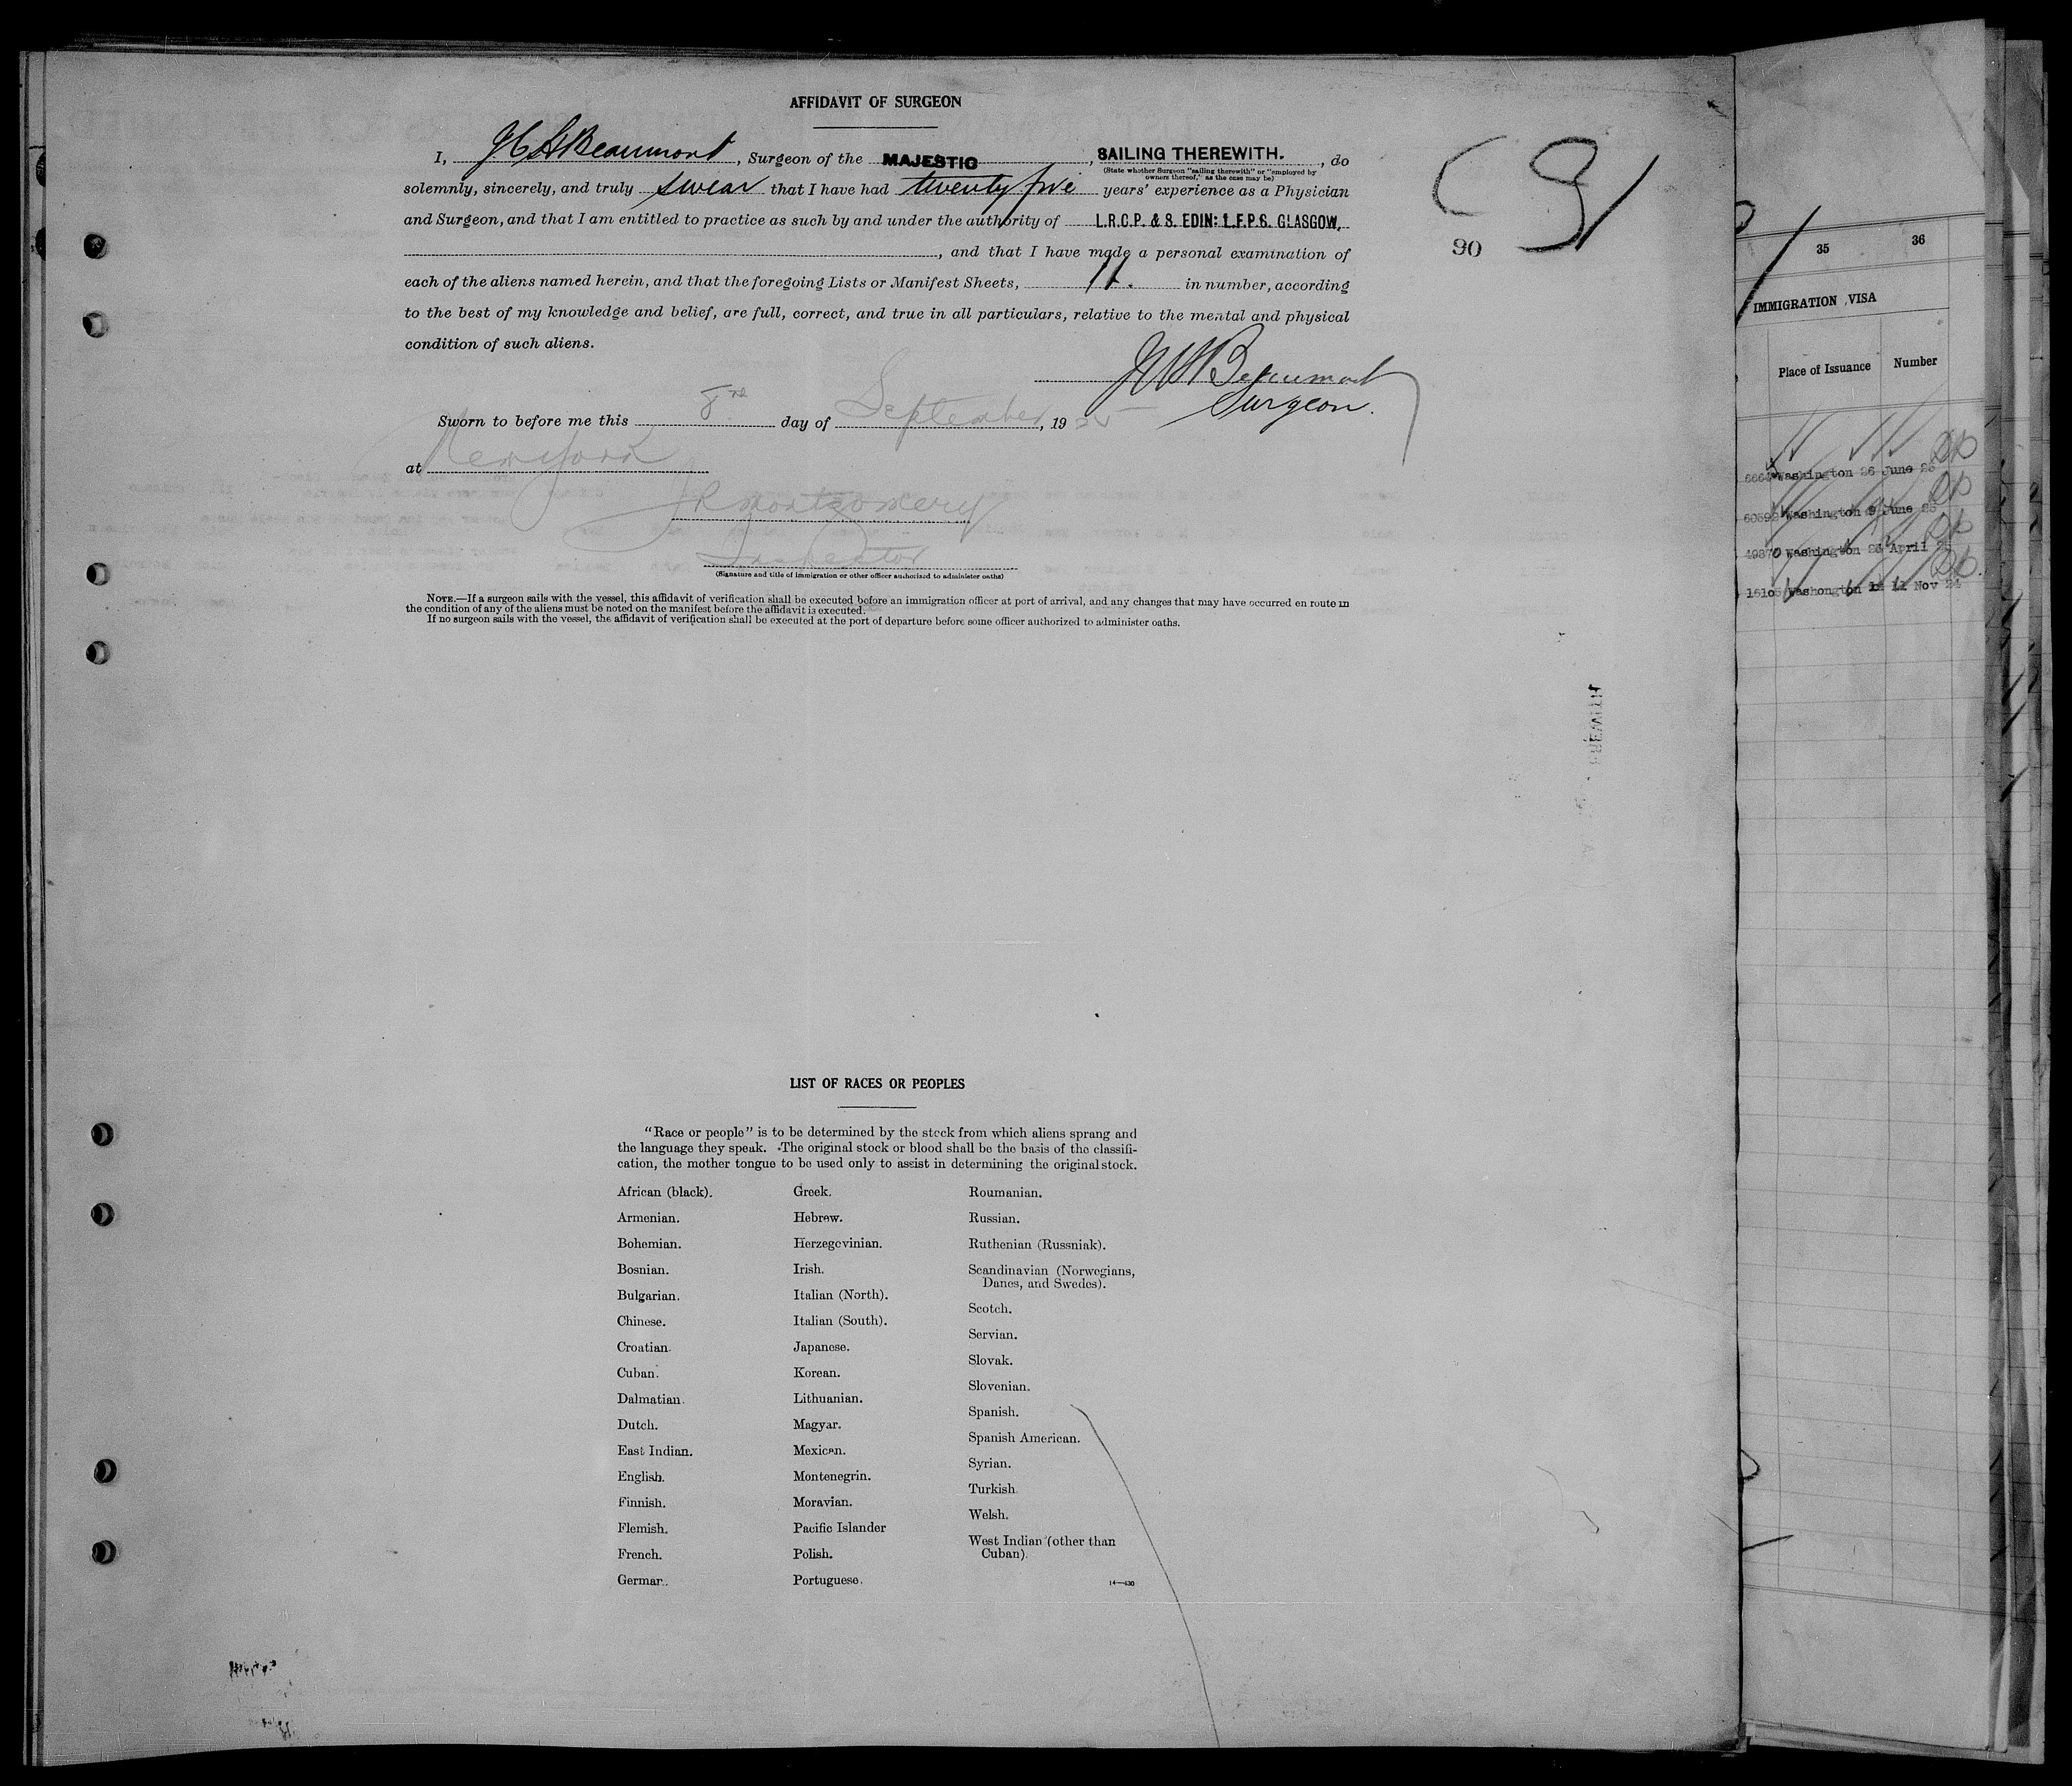 AFFIDAVIT OF SURGEON
I, J H Beaumont, Surgeon of the MAJESTIC, SAILING THEREWITH., do
(State whether Surgeon "sailing therewith" or "employed by
owners thereof," as the case may be)
solemnly, sincerely, and truly swear that I have had twenty five years' experience as a Physician
and Surgeon, and that I am entitled to practice as such by and under the authority of L.R.C.P. & S. EDIN: L.F.P.S. GLASGOW,
, and that I have made a personal examination of
each of the aliens named herein, and that the foregoing Lists or Manifest Sheets, 11. in number, according
to the best of my knowledge and belief, are full, correct, and true in all particulars, relative to the mental and physical
condition of such aliens.
Beaumont
Surgeon.
Sworn to before me this 8 day of September, 19
at New York
Montgomery
Inspector
(Signature and title of immigration or other officer authorized to administer oaths)
NOTE.—If a surgeon sails with the vessel, this affidavit of verification shall be executed before an immigration officer at port of arrival, and any changes that may have occurred en route in
the condition of any of the aliens must be noted on the manifest before the affidavit is executed.
If no surgeon sails with the vessel, the affidavit of verification shall be executed at the port of departure before some officer authorized to administer oaths.
90
91
LIST OF RACES OR PEOPLES
"Race or people" is to be determined by the stock from which aliens sprang and
the language they speak. The original stock or blood shall be the basis of the classifi-
cation, the mother tongue to be used only to assist in determining the original stock.
African (black).
Armenian.
Bohemian.
Bosnian.
Bulgarian.
Chinese.
Croatian.
Cuban.
Dalmatian.
Dutch.
East Indian.
English.
Finnish.
Flemish.
French.
German.
Greek.
Hebrew.
Herzegovinian.
Irish.
Italian (North).
Italian (South).
Japanese.
Korean.
Lithuanian.
Magyar.
Mexican.
Montenegrin.
Moravian.
Pacific Islander
Polish.
Portuguese.
Roumanian.
Russian.
Ruthenian (Russniak).
Scandinavian (Norwegians,
Danes, and Swedes).
Scotch.
Servian.
Slovak.
Slovenian.
Spanish.
Spanish American.
Syrian.
Turkish.
Welsh.
West Indian (other than
Cuban).
14—430
35 36
IMMIGRATION VISA
Place of Issuance Number
Washington 26 June 25
Washington 9 June 25
Washington April
Washongton Nov 24